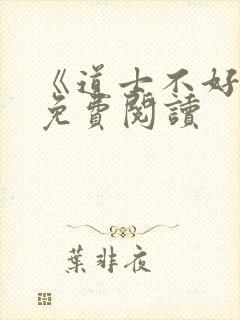 《道士不好
免費閱讀
葉非夜